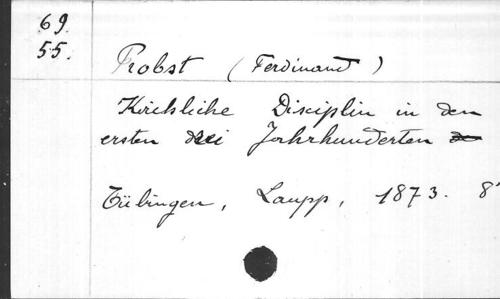 69.
55.
Probst (Ferdinand)
Kirchliche Disciplin in den
ersten drei Jahrhunderten
Tübingen, Laupp, 1873. 8°